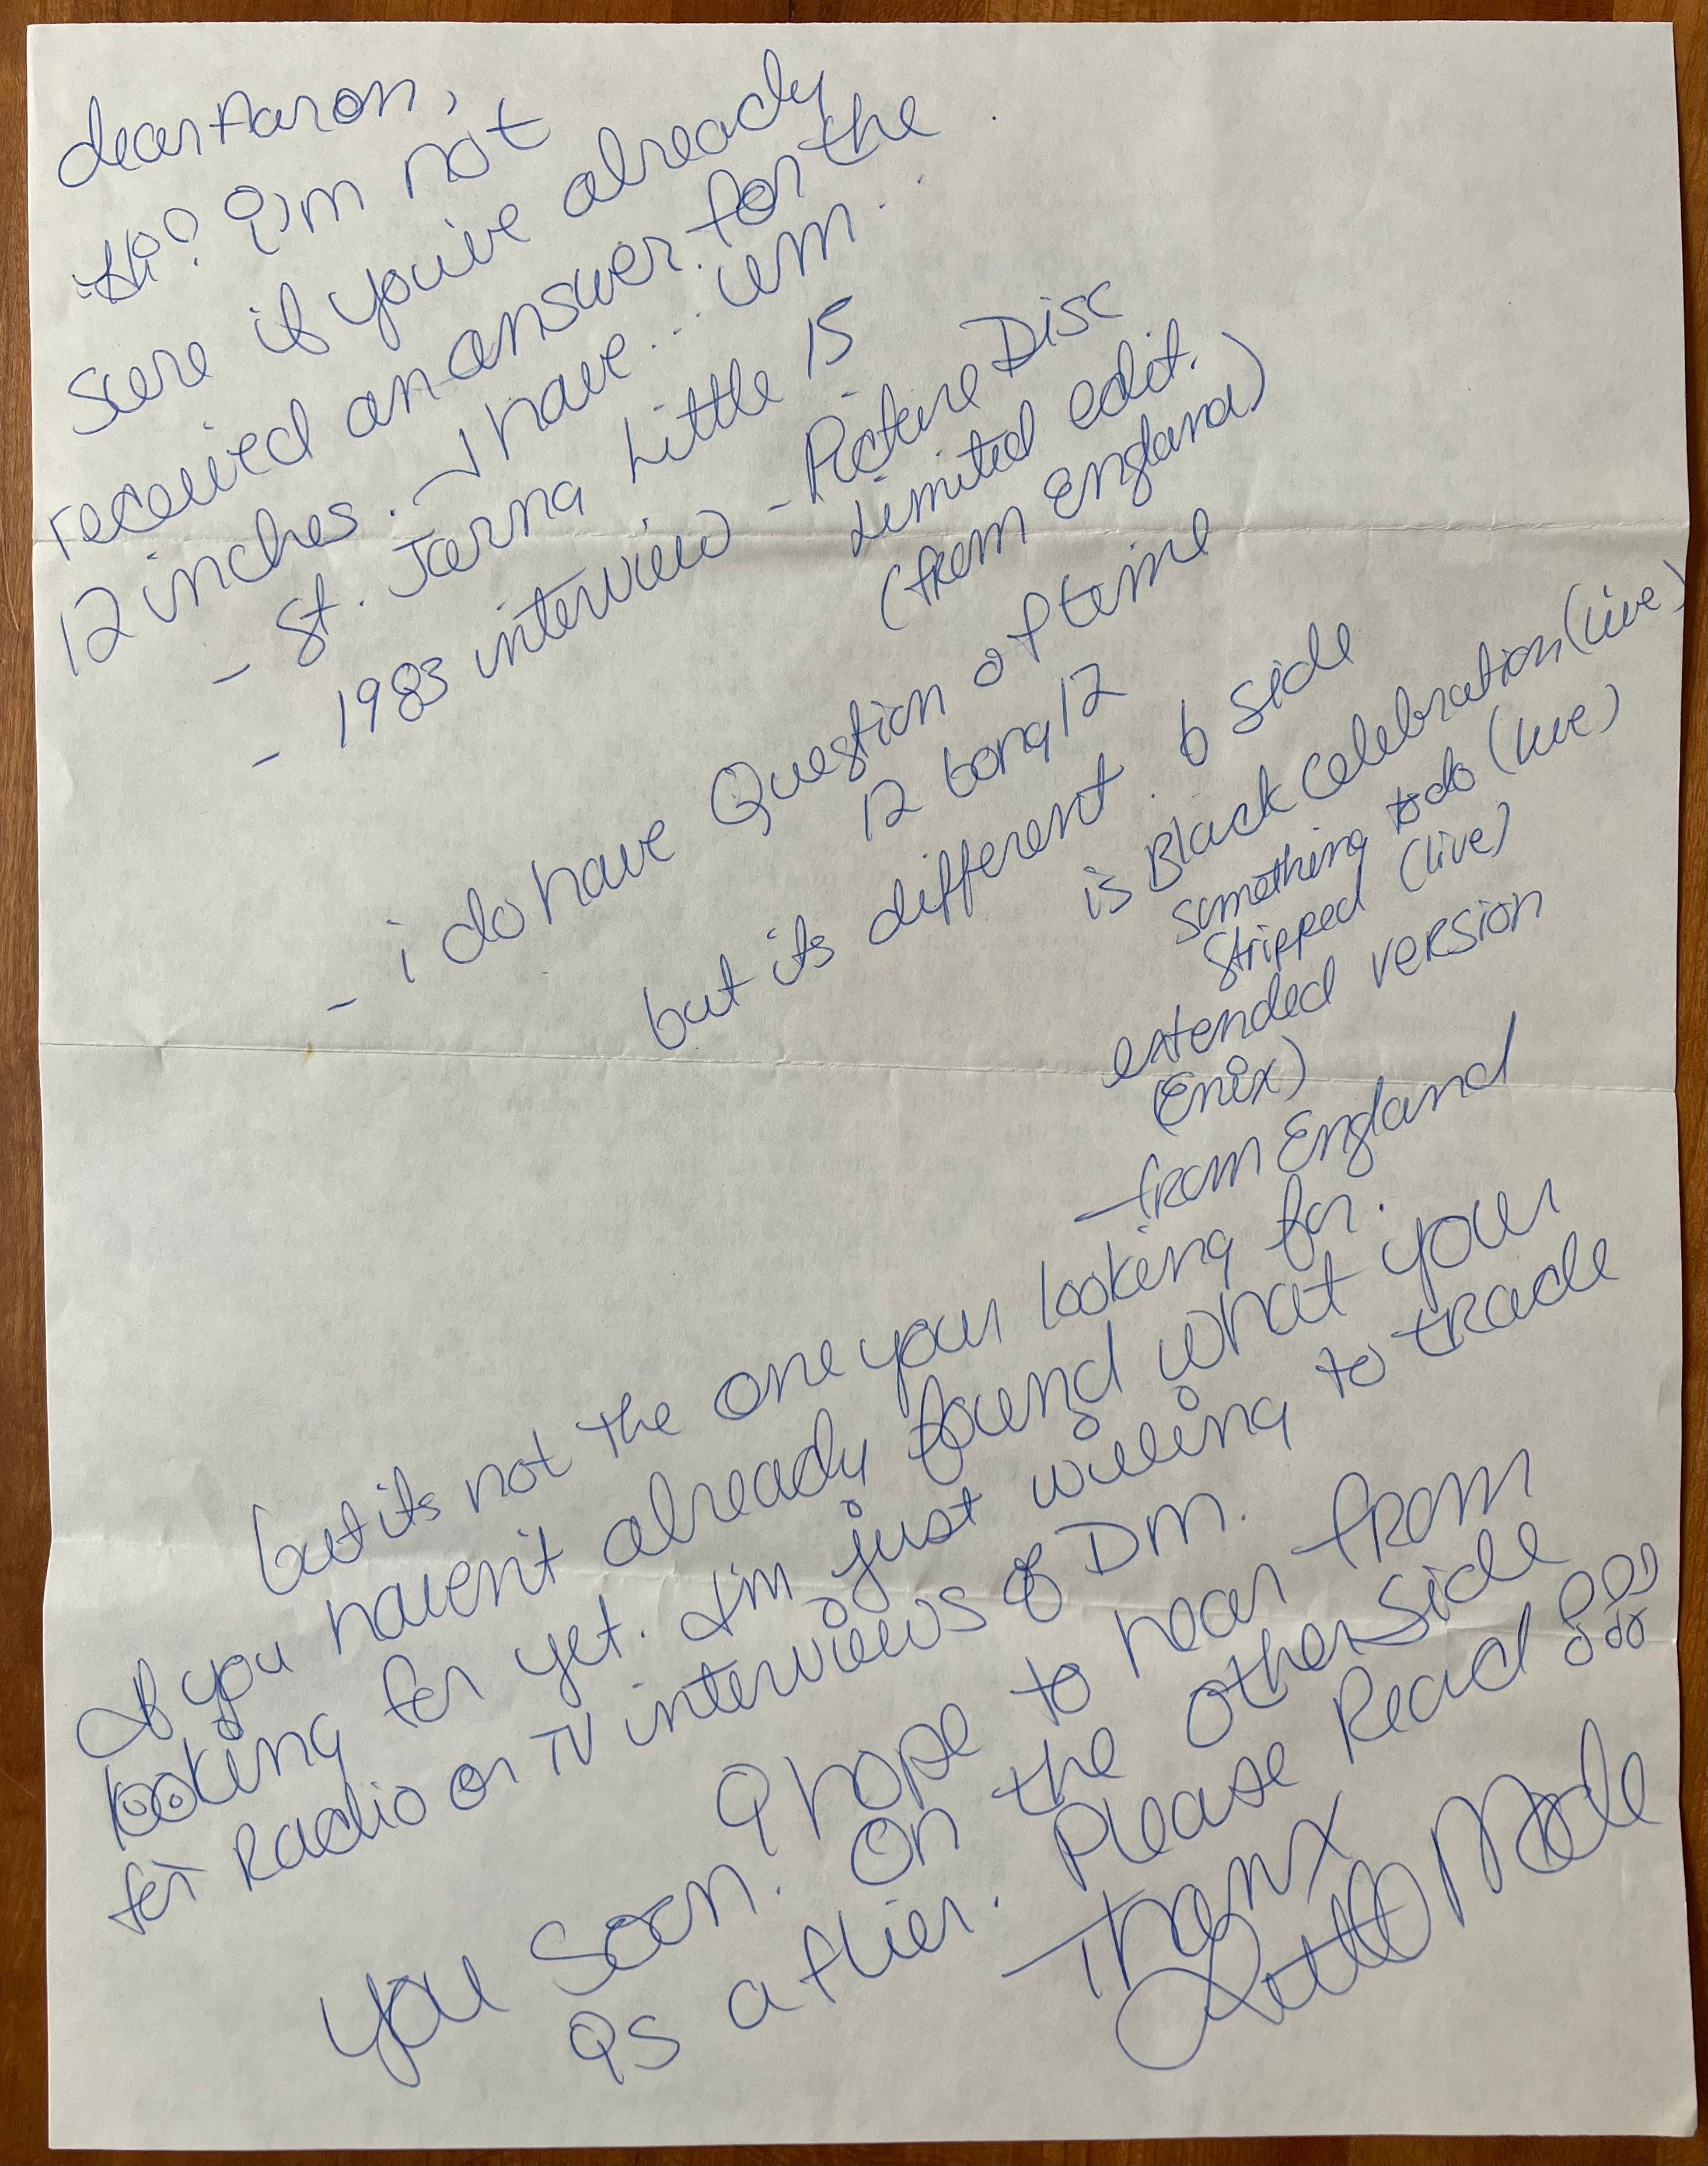 dear Aaron,
Hi! I'm not
sure if you've already
received an answer for the
12 inches. I have... um...
- St. Jarna Little 15
- 1983 interview - Picture Disc
Limited edit.
(from England)
- i do have Question of time
12 bong 12
but its different. b side
is Black Celebration (live)
something to do (live)
Stripped (live)
extended version
from England
but its not the one your looking for.
If you haven't already found what your
looking for yet. I'm just willing to trade
for Radio or TV interviews of DM.
I hope to hear from
you soon. On the other side
is a flier. Please Read !!!
Thanx
Little Mode